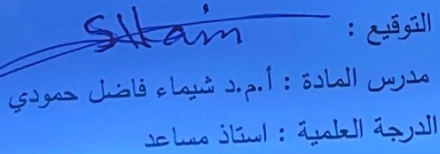 التوقيع :
مدرس المادة : أ.م.د شيماء فاضل حمودي
الدرجة العلمية : استاذ مساعد